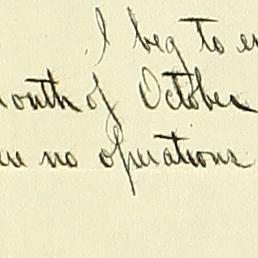 I beg to
month of October
no operations